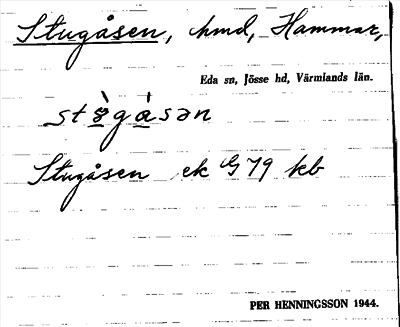 Stugåsen, hmd, Hammar,
Eda sn, Jösse hd, Värmlands län.
Stugåsen ek G 79 kb
PER HENNINGSSON 1944.